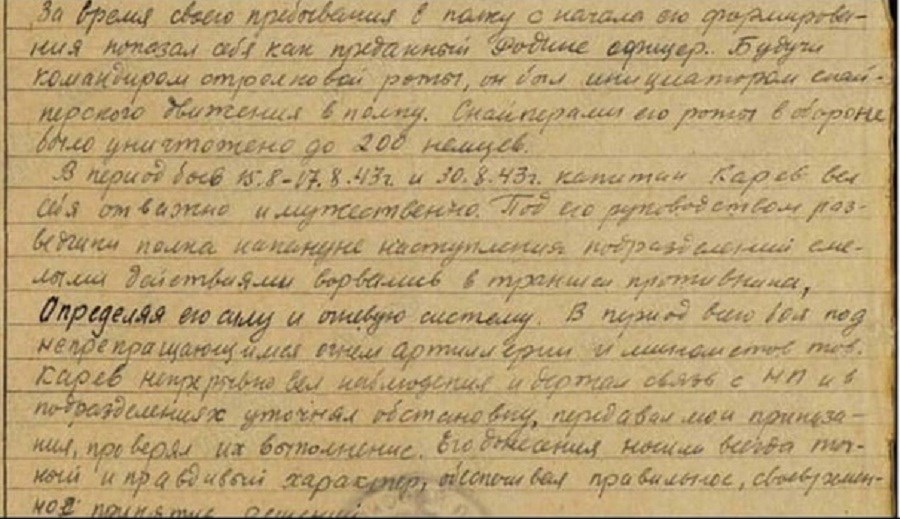 За время своего пребывания в полку с начала его формирова-
ния показал себя как преданный Родине офицер. Будучи
командиром стрелковой роты, он был инициатором снай-
перского движения в полку. Снайперами его роты в обороне
было уничтожено до 200 немцев.
В период боев 15.8-17.8.43г. и 30.8.43г. капитан Карев вел
себя отважно и мужественно. Под его руководством раз-
ведчики полка накануне наступления подразделений сме-
лыми действиями ворвались в траншеи противника,
Определяя его силу и огневую систему. В период всего боя под
непрекращающимся огнем артиллерии и минометов тов.
Карев непрерывно вел наблюдения и держал связь с НП и в
подразделениях уточнял обстановку, передавал мои приказа-
ния, проверял их выполнение. Его донесения носили всегда точ-
ный и правдивый характер, обеспечивая правильное, своевремен-
ное принятие решений